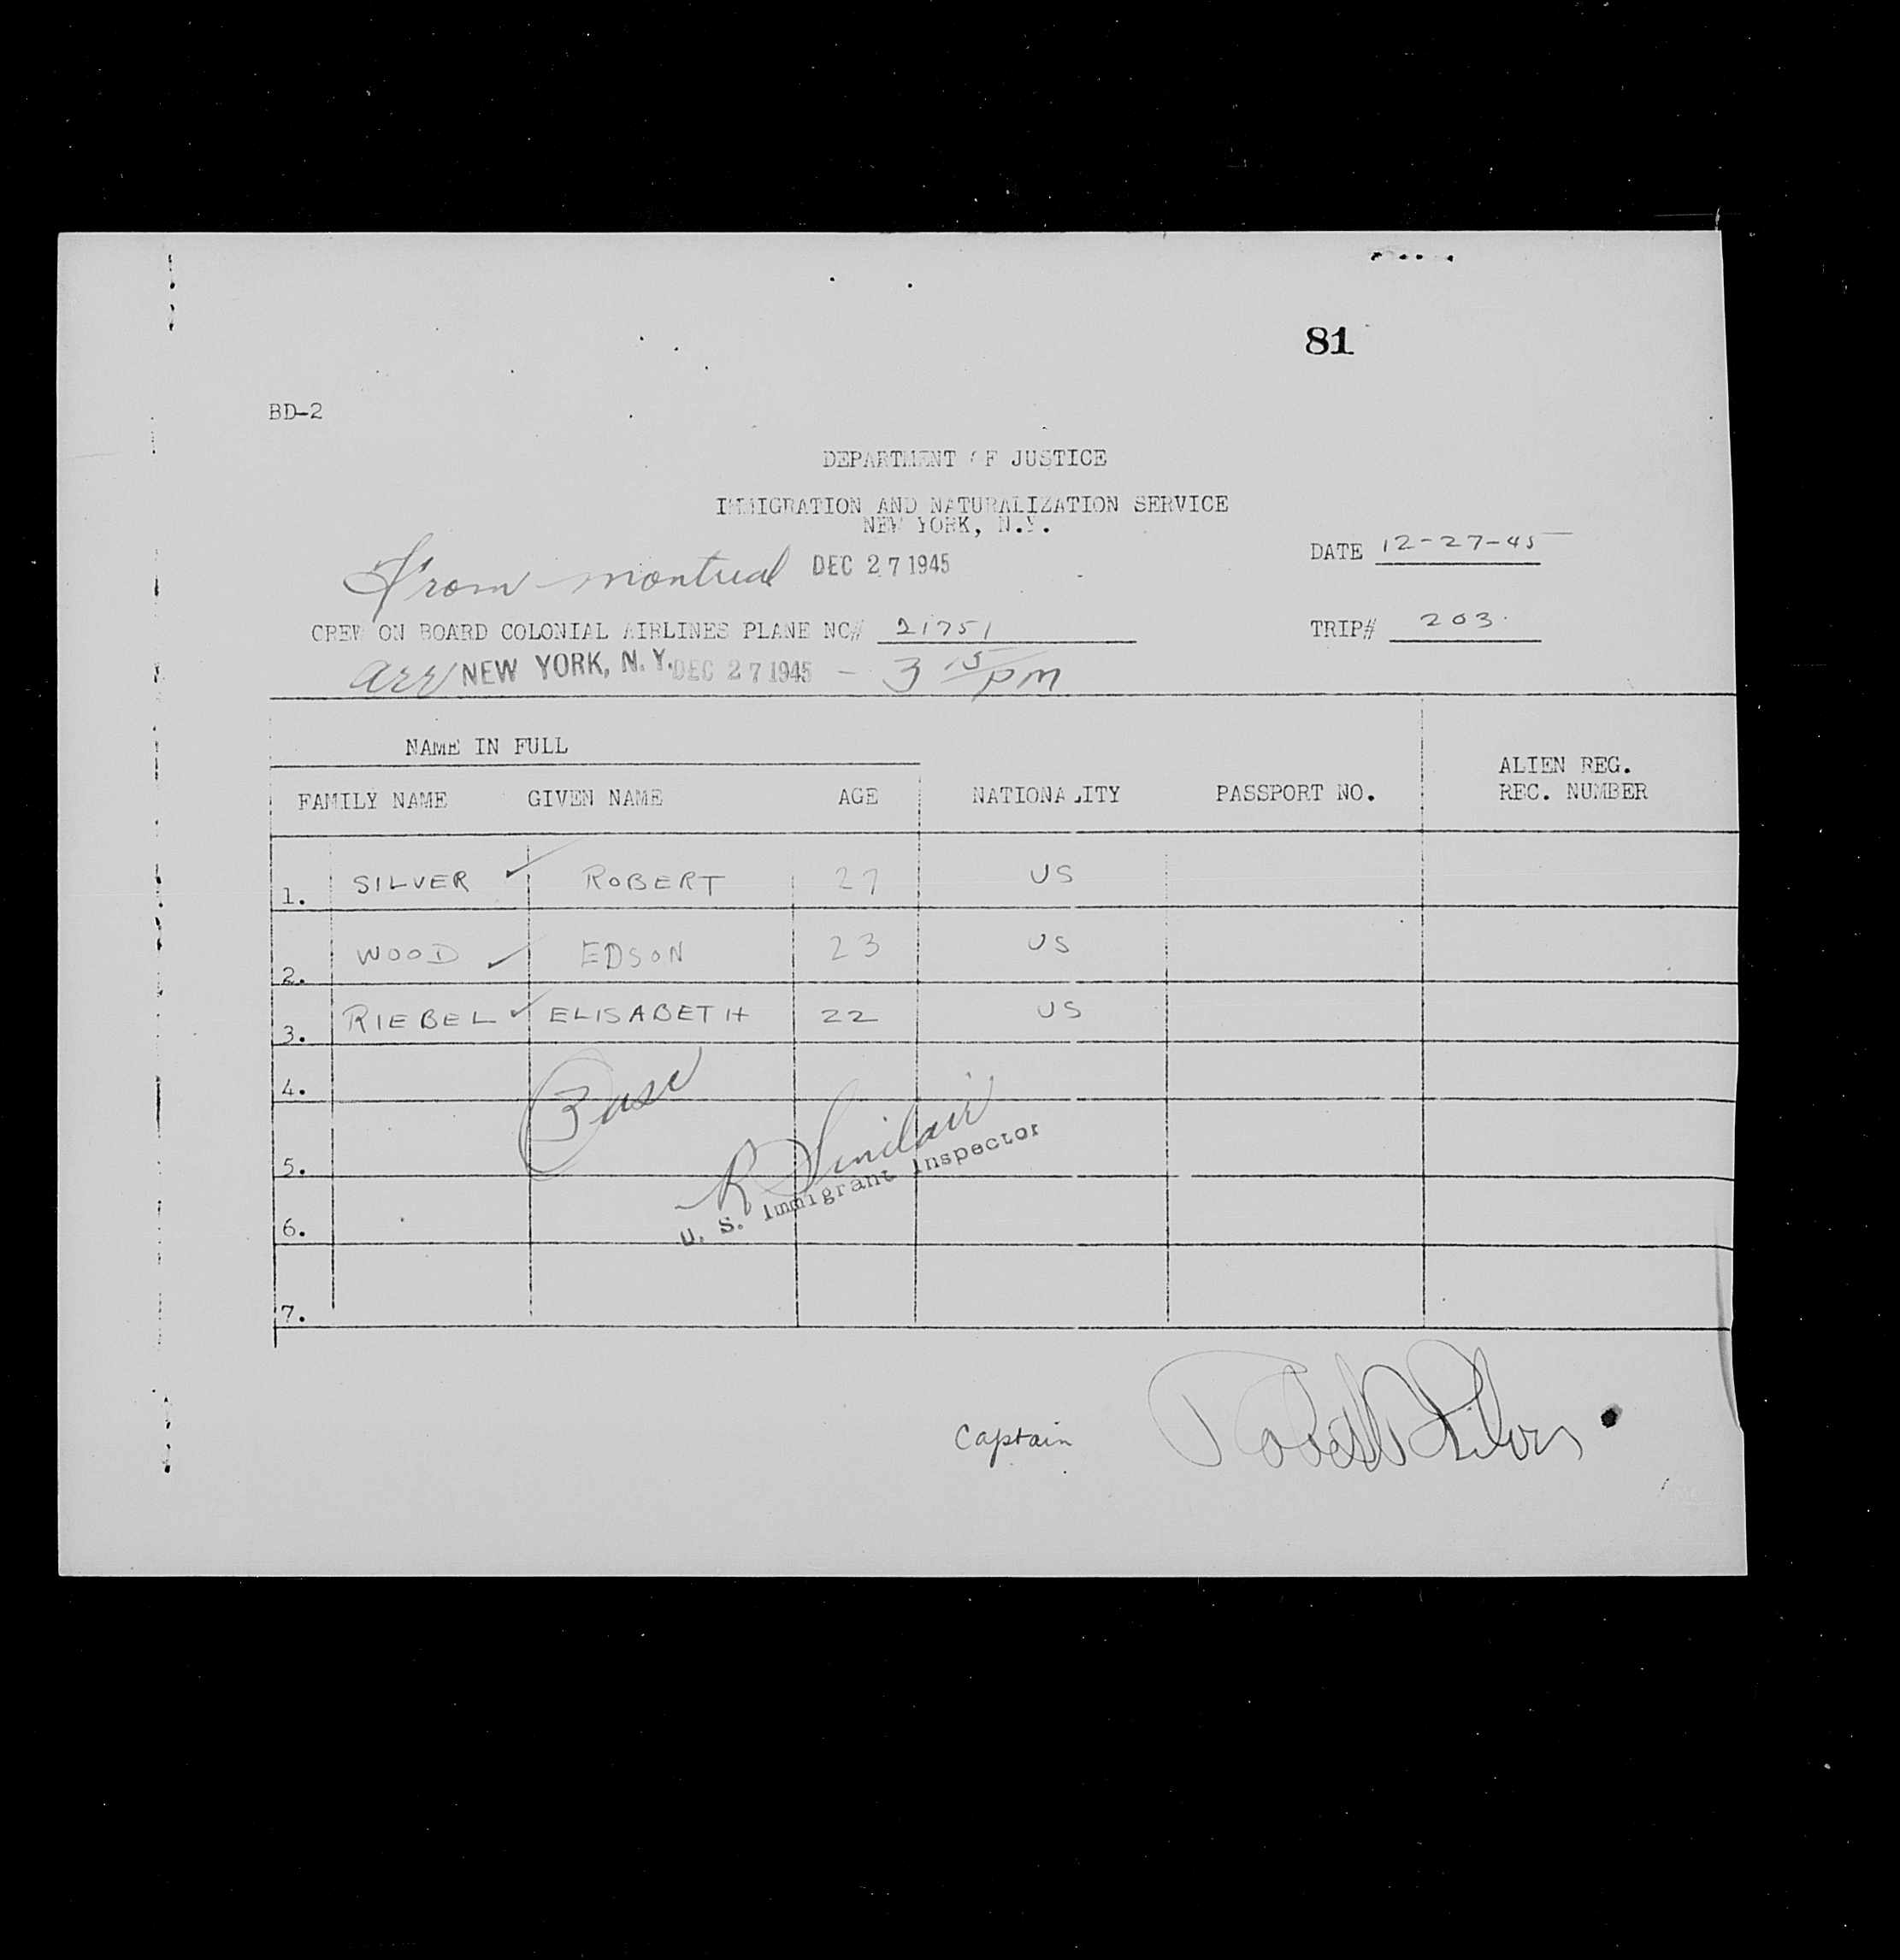 81
BD-2
DEPARTMENT OF JUSTICE
IMMIGRATION AND NATURALIZATION SERVICE
NEW YORK, N.Y.
From Montreal DEC 27 1945
DATE 12-27-45
CREW ON BOARD COLONIAL AIRLINES PLANE NC# 21751
TRIP# 203
arr NEW YORK, N.Y. DEC 27 1945 - 3 15 pm
NAME IN FULL
FAMILY NAME GIVEN NAME AGE NATIONALITY PASSPORT NO. ALIEN REG. REC. NUMBER
1. SILVER ✓ ROBERT 27 US
2. WOOD ✓ EDSON 23 US
3. RIEBEL ✓ ELISABETH 22 US
4.
5.
R Sinclair
U. S. Immigrant Inspector
6.
7.
Captain Robert Silver